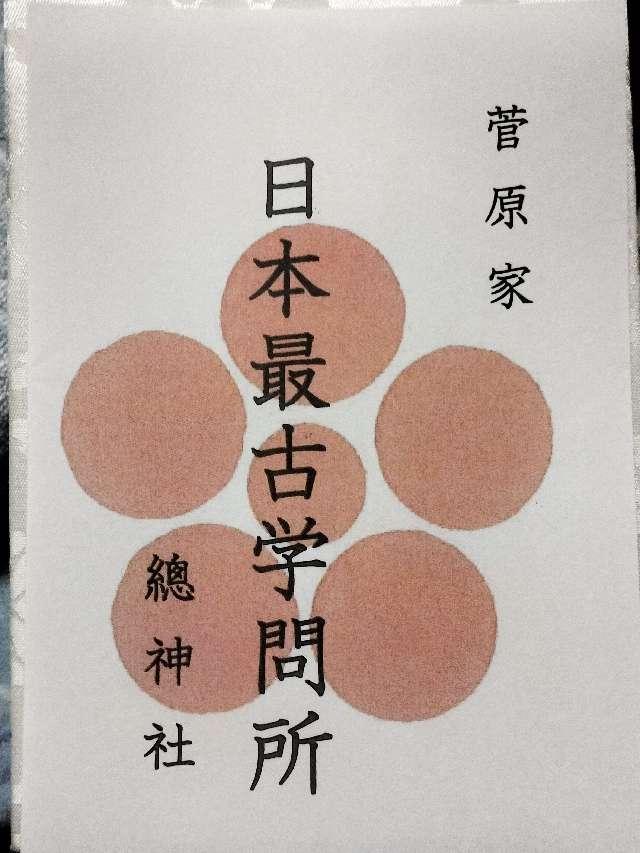 菅原家
日本最古学問所
總神社